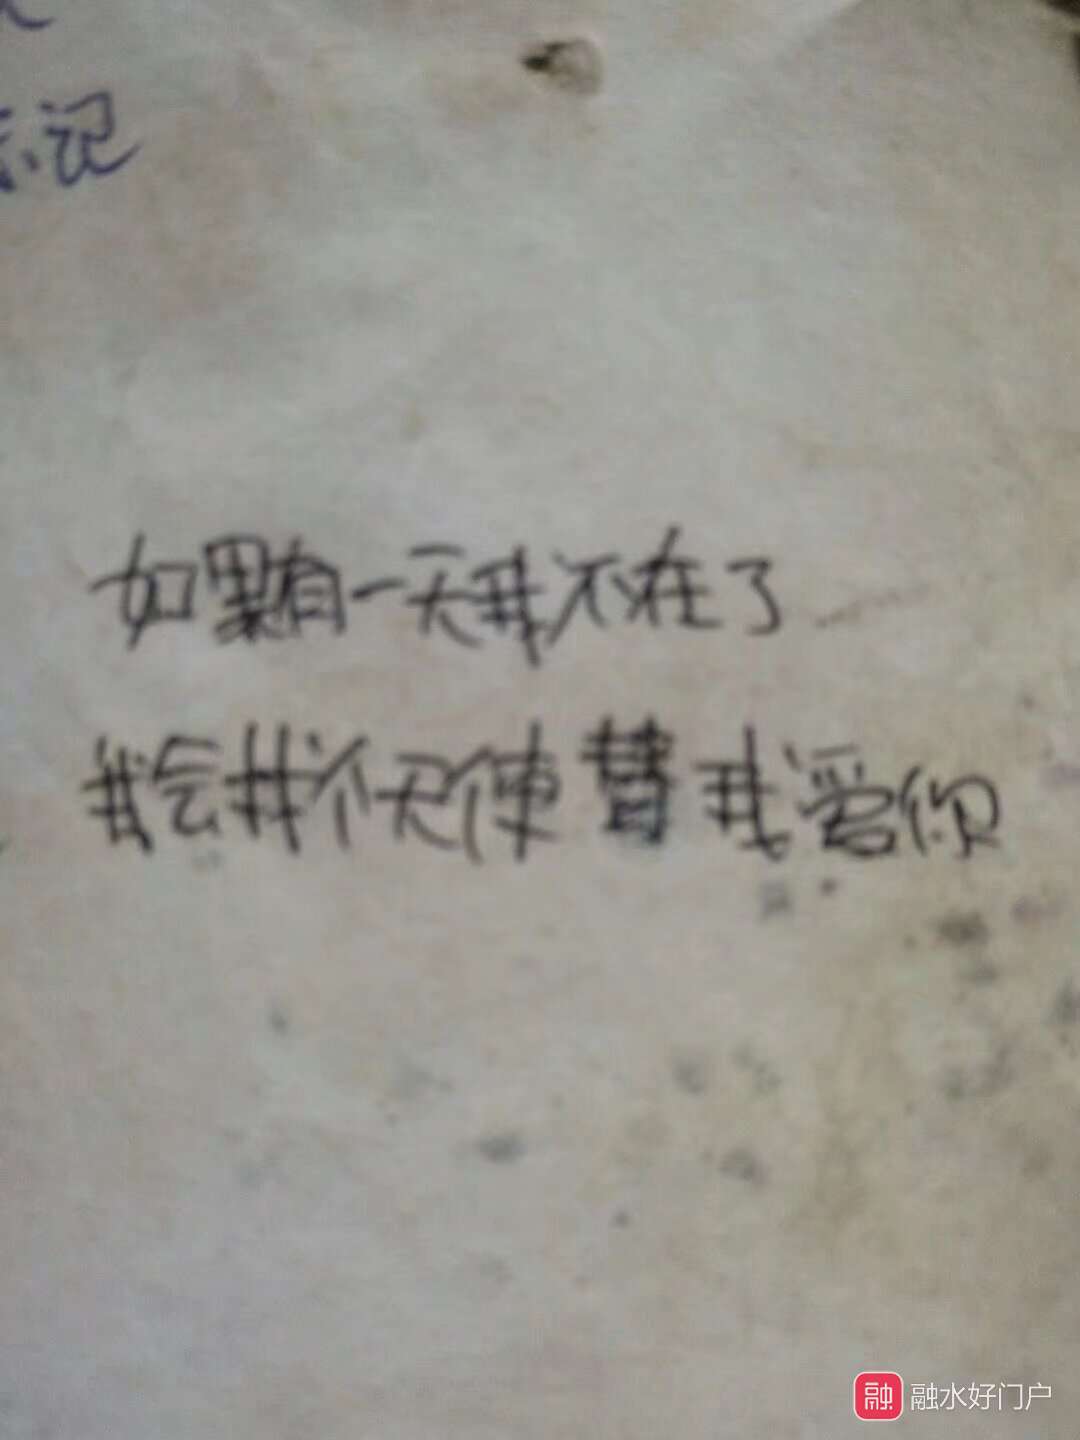 忘记
如果有一天我不在了
我会找个天使替我爱你
融 融水好门户